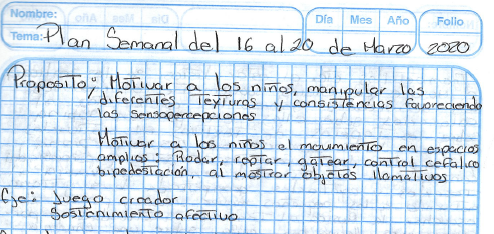 Nombre:
Día Mes Año Folio
Tema: Plan Semanal del 16 al 20 de Marzo 2020
Proposito: Motivar a los niños, manipular las
diferentes Texturas y consistencias favoreciendo
las sensopercepciones
Motivar a los niños el movimiento en espacios
amplios: Rodar, reptar, gatear, control cefalico
bipedestación, al mostrar objetos llamativos
Eje: Juego creador
Sostenimiento afectivo